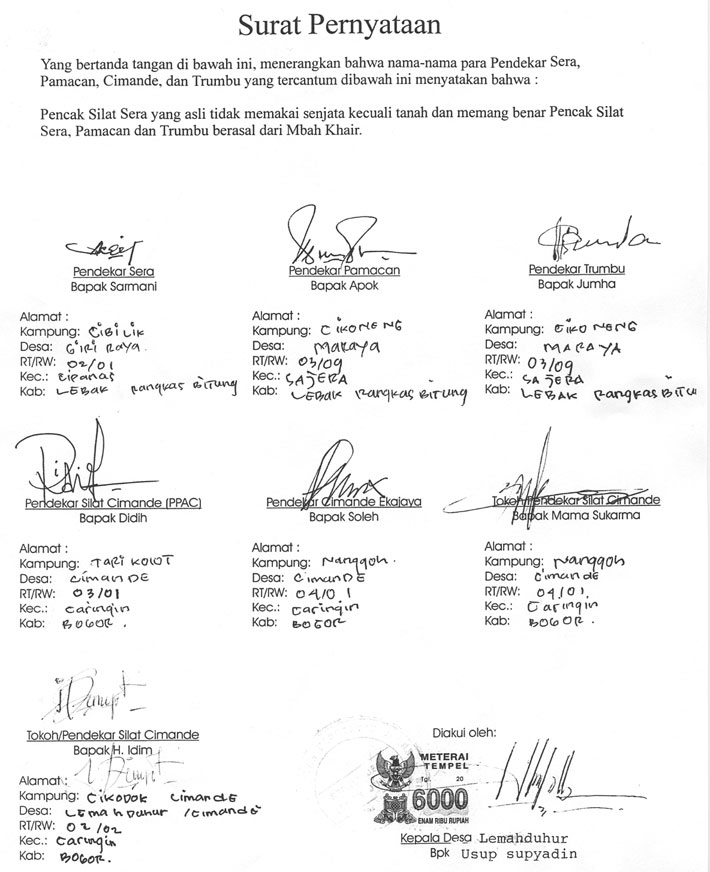 Surat Pernyataan
Yang bertanda tangan di bawah ini, menerangkan bahwa nama-nama para Pendekar Sera,
Pamacan, Cimande, dan Trumbu yang tercantum dibawah ini menyatakan bahwa :
Pencak Silat Sera yang asli tidak memakai senjata kecuali tanah dan memang benar Pencak Silat
Sera, Pamacan dan Trumbu berasal dari Mbah Khair.
Pendekar Sera
Bapak Sarmani
Alamat :
Kampung: CiBiLiK
Desa: GiRi RAYA.
RT/RW: 02/01
Kec.: Cipanas
Kab: LEBAK Rangkas Bitung
Pendekar Pamacan
Bapak Apok
Alamat :
Kampung: CIKONENG
Desa: MARAYA
RT/RW: 03/09
Kec.: SAJERA
Kab: LEBAK Rangkas BiTung
Pendekar Trumbu
Bapak Jumha
Alamat :
Kampung: CIKONENG
Desa: MARAYA
RT/RW: 03/09
Kec.: SAJERA
Kab: LEBAK Rangkas BiTu
Pendekar Silat Cimande (PPAC)
Bapak Didih
Alamat :
Kampung: TARI KOLOT
Desa: CimanDE
RT/RW: 03/01
Kec.: Caringin
Kab: BOGOR.
Pendekar Cimande Ekajaya
Bapak Soleh
Alamat :
Kampung: Nanggoh.
Desa: CimanDE
RT/RW: 04/01
Kec.: Caringin
Kab: BOGOR
Tokoh/Pendekar Silat Cimande
Bapak Mama Sukarma
Alamat :
Kampung: Nanggoh
Desa: CimandE
RT/RW: 04/01.
Kec.: Caringin
Kab: BOGOR.
Tokoh/Pendekar Silat Cimande
Bapak H. Idim
Alamat:
Kampung: CiKODOK CimandE
Desa: LEMAHDUHUR /CimandE
RT/RW: 02/02
Kec.: Caringin
Kab: BOGOR.
Diakui oleh:
METERAI
TEMPEL
Tgl. 20
6000
ENAM RIBU RUPIAH
Kepala Desa Lemahduhur
Bpk Usup supyadin